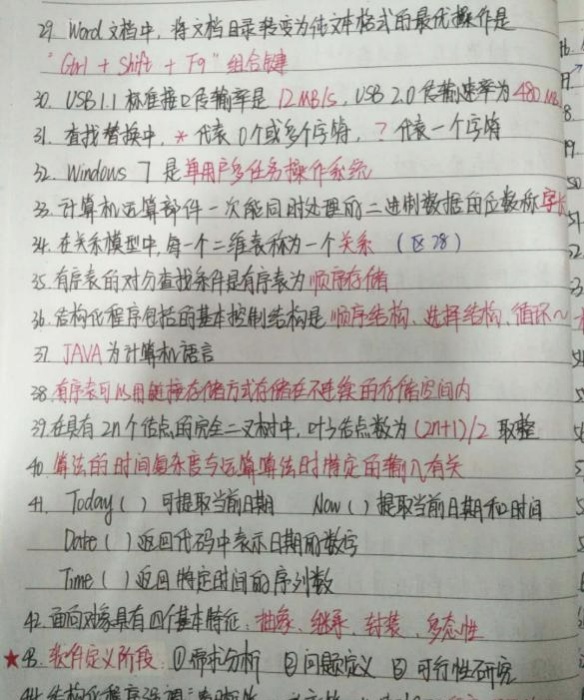 29. Word文档中，将文档目录转变为纯文本格式的最优操作是
"Ctrl + Shift + F9" 组合键
30. USB1.1标准接口传输率是12MB/s，USB 2.0传输速率为480MB
31. 查找替换中，*代表0个或多个字符，?代表一个字符
32. Windows 7是单用户多任务操作系统
33. 计算机运算部件一次能同时处理的二进制数据的位数称字长
34. 在关系模型中，每一个二维表称为一个关系 (区28)
35. 有序表的对分查找条件是有序表为顺序存储
36. 结构化程序包括的基本控制结构是顺序结构、选择结构、循环~
37. JAVA为计算机语言
38. 有序表可以用链接存储方式存储在不连续的存储空间内
39. 在具有2n个结点的完全二叉树中，叶子结点数为(2n+1)/2 取整
40. 算法的时间复杂度与运算算法时特定的输入有关
41. Today( ) 可提取当前日期 Now( ) 提取当前日期和时间
Date( ) 返回代码中表示日期的数字
Time( ) 返回特定时间的序列数
42. 面向对象具有四个基本特征：抽象、继承、封装、多态性
★43. 软件定义阶段：①需求分析 ②问题定义 ③可行性研究